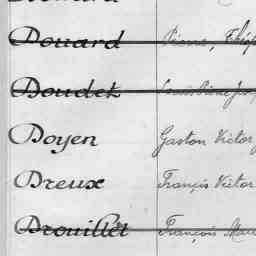 Douard Pierre,
Doudet Louis Pierre
Doyen Gaston Victor
Dreux François Victor
Drouillet François